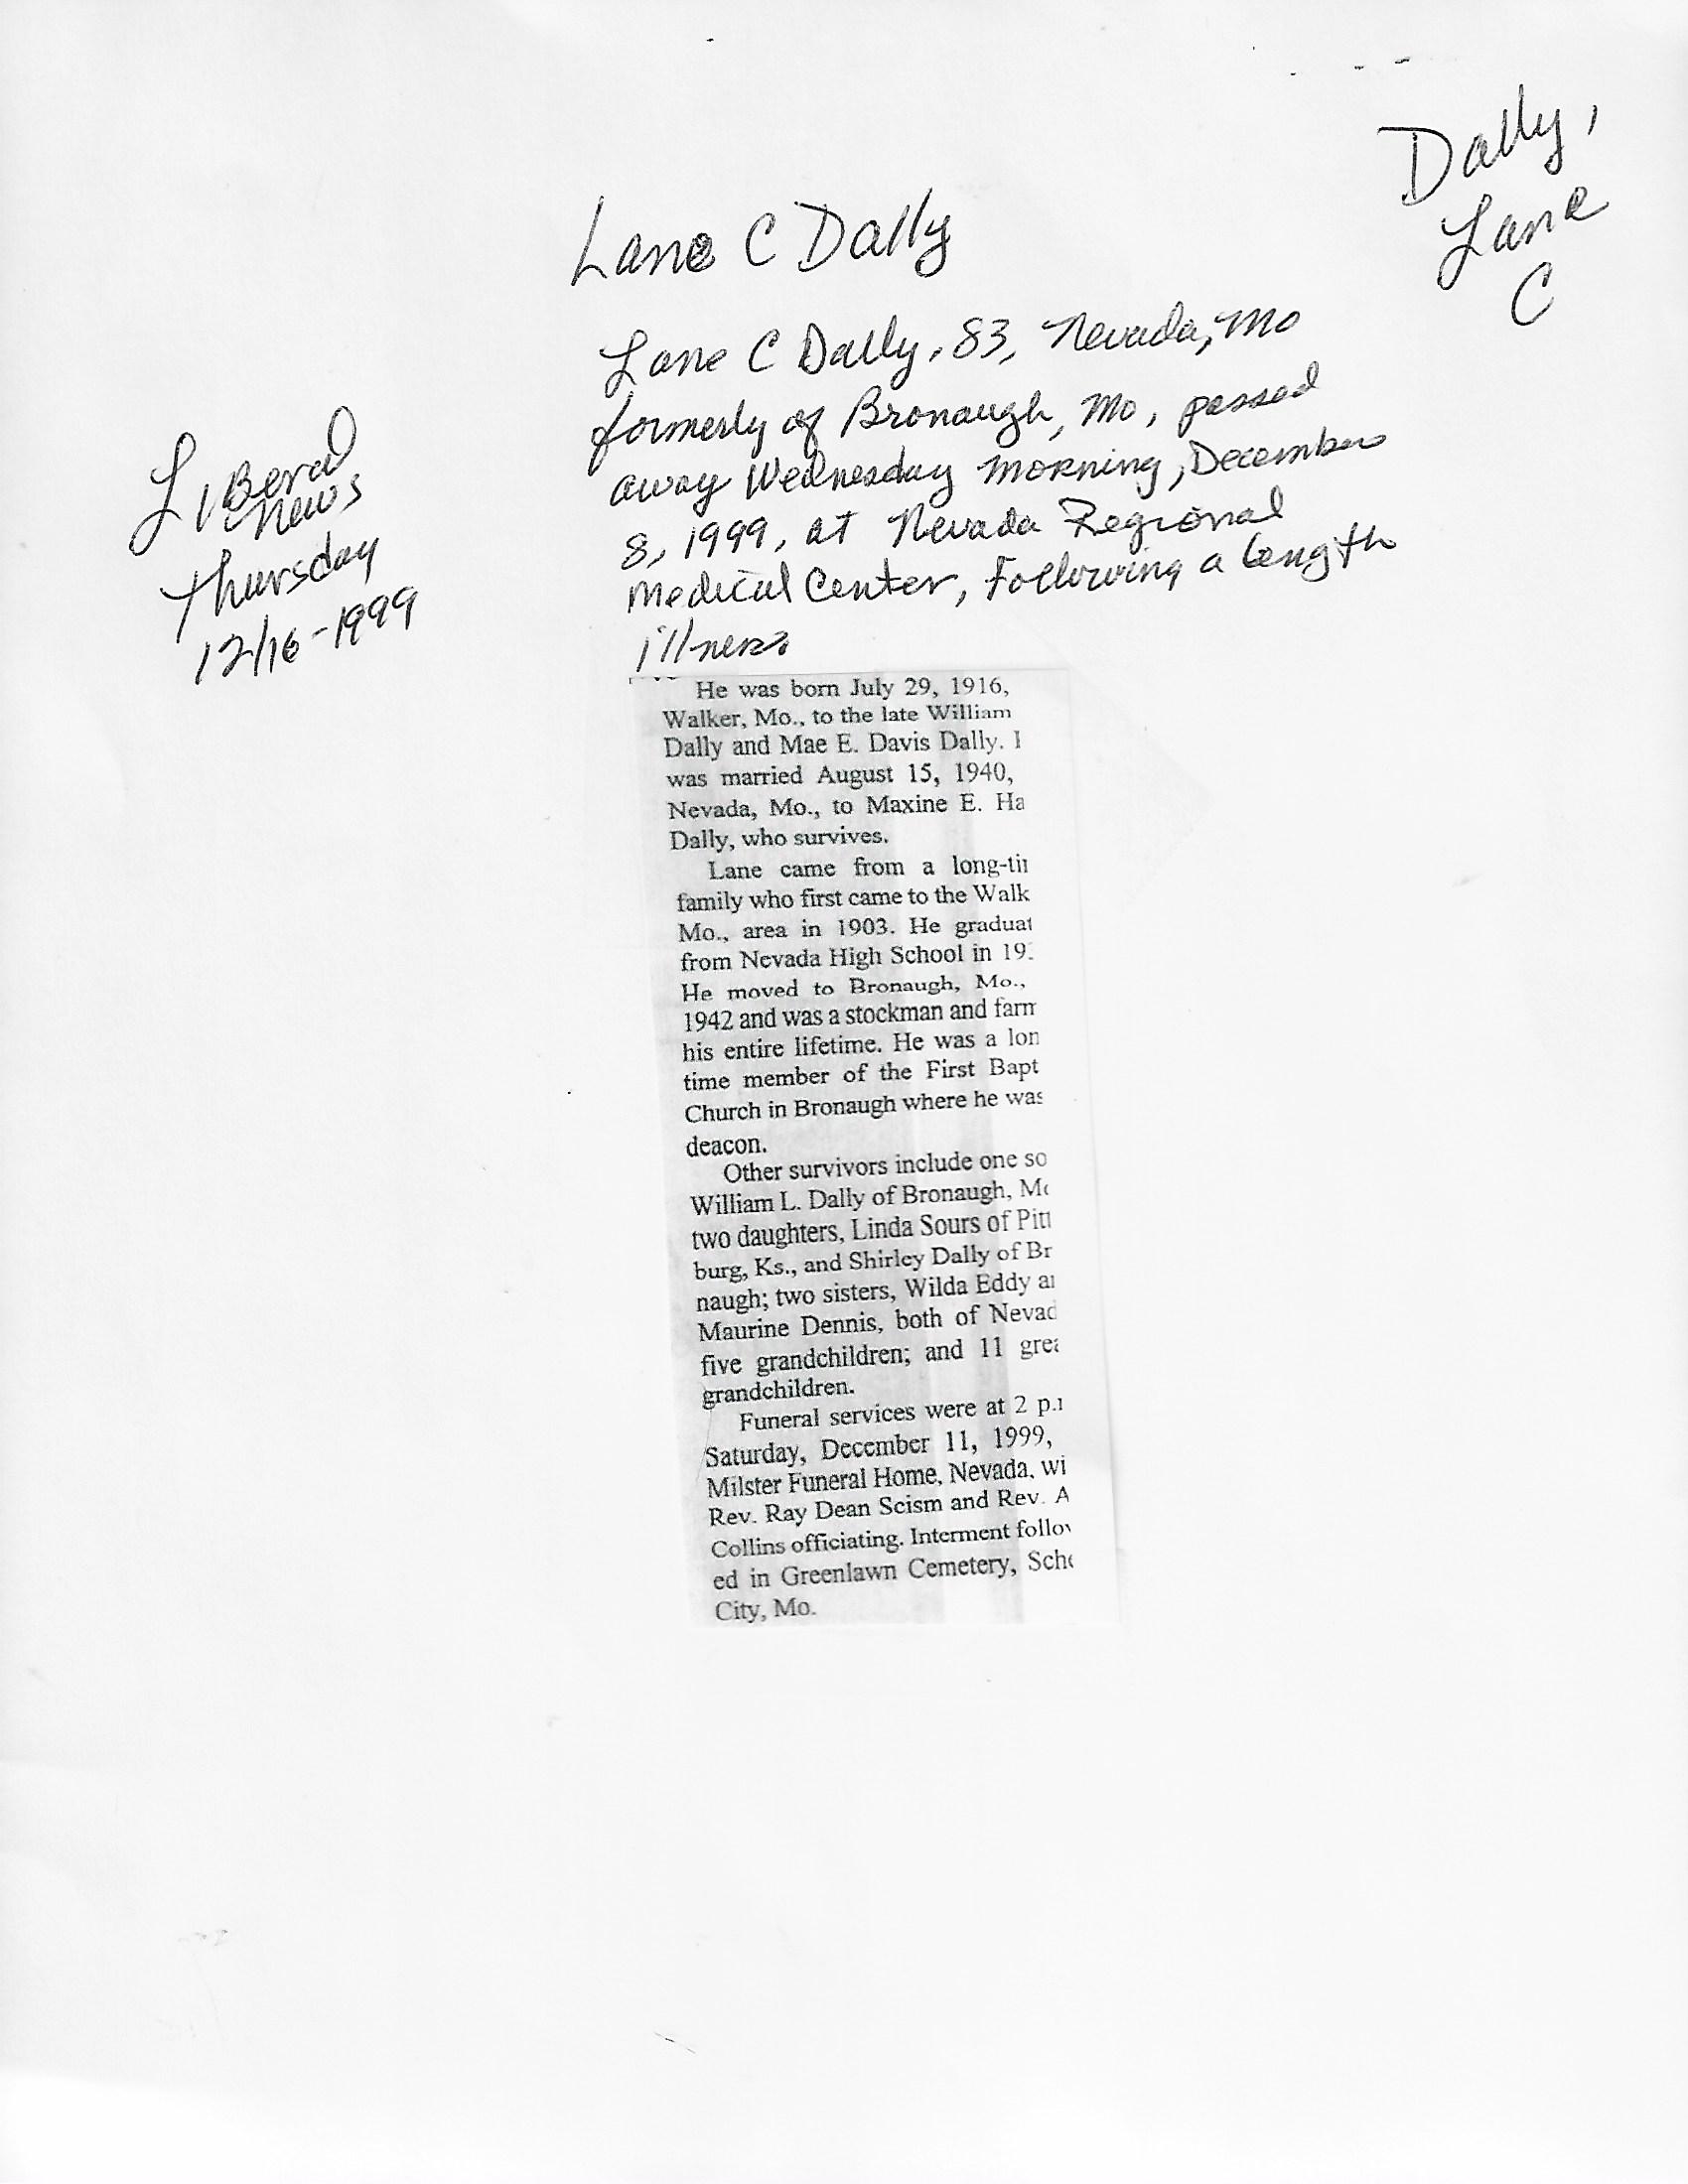 Dally,
Lane
C
Lane C Dally
Lane C Dally, 83, Nevada, Mo
formerly of Bronaugh, Mo, passed
away Wednesday morning, December
8, 1999, at Nevada Regional
Medical Center, Following a length
illness
Liberal
News
Thursday
12/16-1999
He was born July 29, 1916,
Walker, Mo., to the late William
Dally and Mae E. Davis Dally. I
was married August 15, 1940,
Nevada, Mo., to Maxine E. Ha
Dally, who survives.
Lane came from a long-tir
family who first came to the Walk
Mo., area in 1903. He graduat
from Nevada High School in 193
He moved to Bronaugh, Mo.,
1942 and was a stockman and farm
his entire lifetime. He was a lon
time member of the First Bapt
Church in Bronaugh where he was
deacon.
Other survivors include one so
William L. Dally of Bronaugh, Mo
two daughters, Linda Sours of Pitt
burg, Ks., and Shirley Dally of Br
naugh; two sisters, Wilda Eddy an
Maurine Dennis, both of Nevad
five grandchildren; and 11 grea
grandchildren.
Funeral services were at 2 p.m
Saturday, December 11, 1999,
Milster Funeral Home, Nevada, wi
Rev. Ray Dean Scism and Rev. A
Collins officiating. Interment follow
ed in Greenlawn Cemetery, Sche
City, Mo.